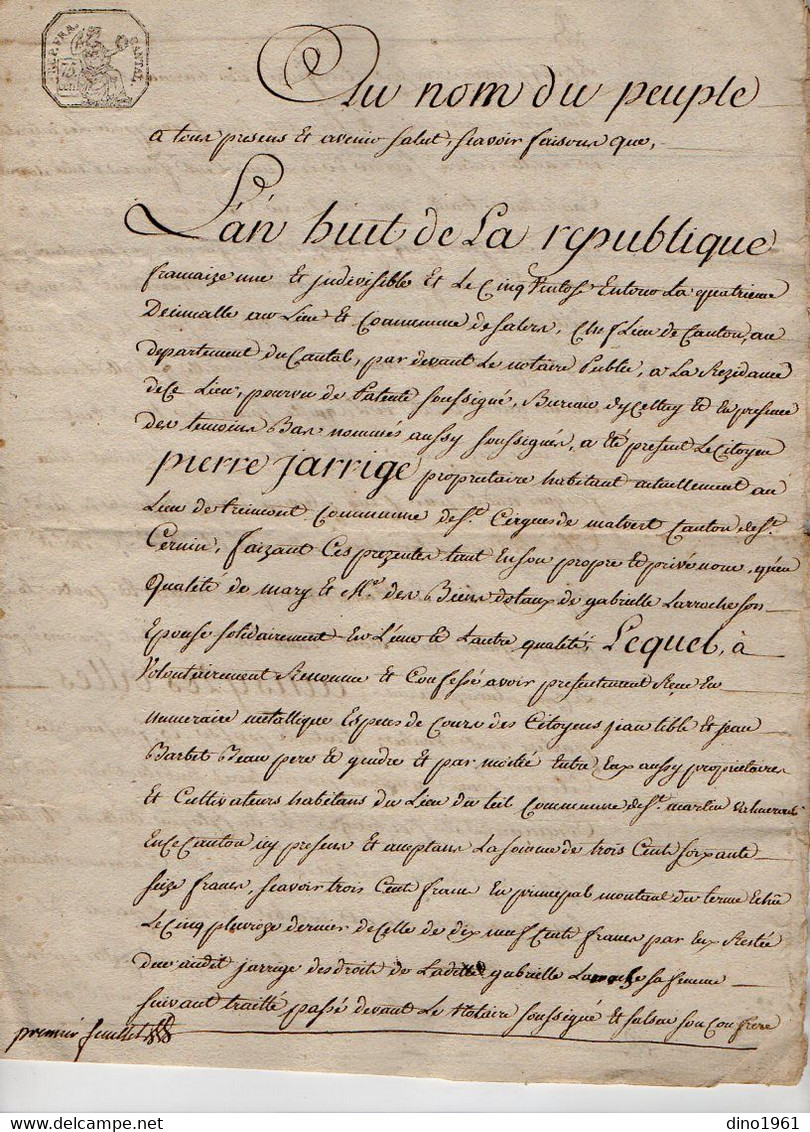 REP. FRA.
CANTAL.
75
cent
Au nom du peuple
a tous presens et avenir salut, scavoir faisons que,
L'an huit de La republique
francaize une et indivisible et le cinq Ventose Environ la quatrieme
Decimalle au Lieu et Commune de salers, Chef Lieu de Canton, au
departement du Cantal, par devant Le notaire Public, a La Rezidance
de Ce Lieu, pourvu de Patente soussigné, Bureau d'ycelluy et en presence
des temoins Bas nommés aussy soussignés, a été present Le Citoyen
pierre jarrige proprietaire habitant actuellement au
Lieu de tremont Commune de st. Cirgues de malvert Canton de st.
Cernin, faizant Ces prezentes tant En son propre et privé nom, qu'en
Qualité de mary et Me. des Biens dotaux de gabrielle Larroche son
Epouse solidairement En L'une et L'autre qualité, Lequel, à
Volontairement Reconnu et Confessé avoir presentement Reçu En
numeraire metallique Especes de Cours des Citoyens jean tible et jean
Barbet Beau pere et gendre et par moitié Entre Eux aussy proprietaires
et Cultivateurs habitans du Lieu du teil Commune de st. martin Valmeroux
En Ce Canton icy presens et acceptans La somme de trois Cent soixante
seize francs, scavoir trois Cent francs En principal montant du terme Echu
Le Cinq pluvioze dernier de Celle de dix neuf Cents francs par Eux Restée
due audit jarrige des droits de Ladite gabrielle Larroche sa femme
suivant traitté passé devant Le Notaire soussigné et salsac son Confrere
premier feuillet
dino1961